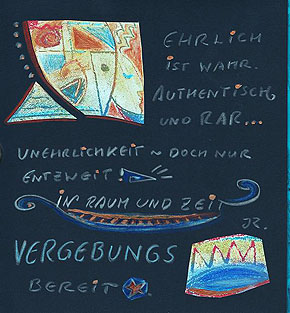 EHRLICH
IST WAHR.
AUTHENTISCH,
UND RAR...
UNEHRLICHKEIT ~ DOCH NUR
ENTZWEIT!
IN RAUM UND ZEIT
JR.
VERGEBUNGS
BEREIT.